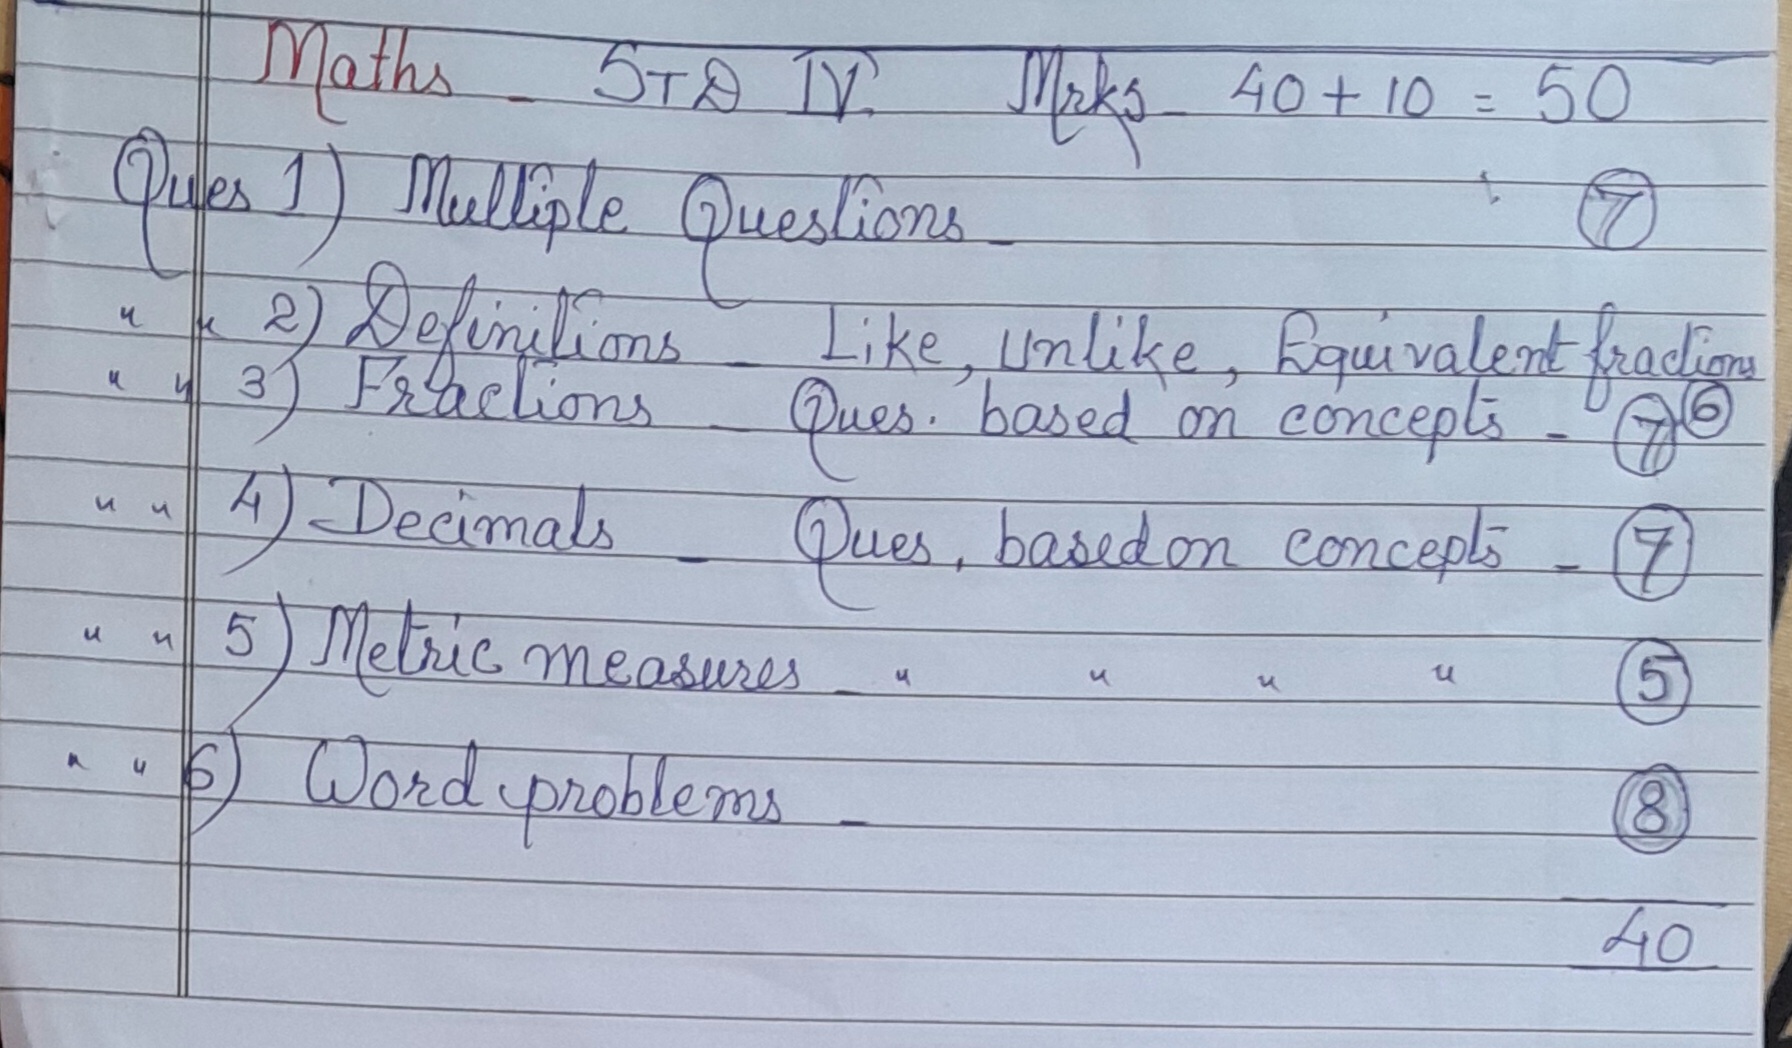 Maths - STD IV. Mrks - 40 + 10 = 50
Ques 1) Multiple Questions - 7
" " 2) Definitions - Like, Unlike, Equivalent fractions 6
" " 3) Fractions - Ques. based on concepts - 7
" " 4) Decimals - Ques. based on concepts - 7
" " 5) Metric measures - " " " " 5
" " 6) Word problems - 8
40